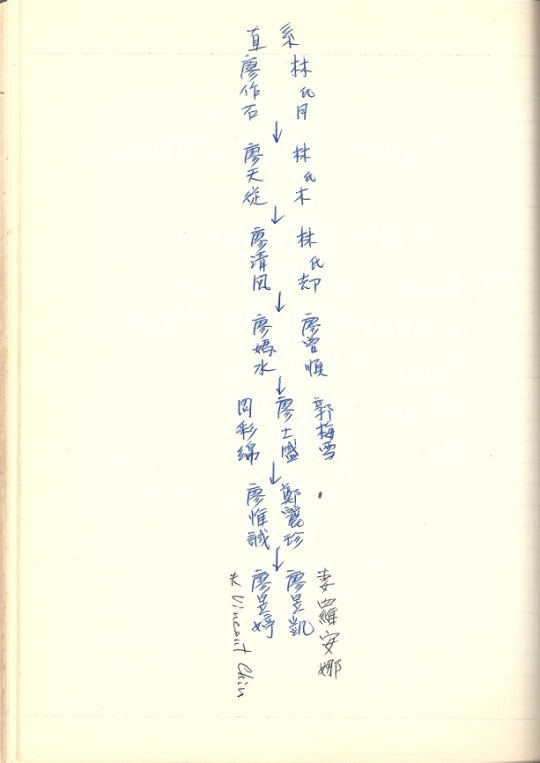 直系
廖作石
林氏月
↓
廖天從
林氏木
↓
廖清风
林氏却
↓
廖媽水
廖曾順
↓
周彩綿
廖士盛
郭梅雪
↓
廖惟誠
鄭麗珍
↓
夫 Vincent Chin
廖昱婷
廖昱凱
妻羅安娜